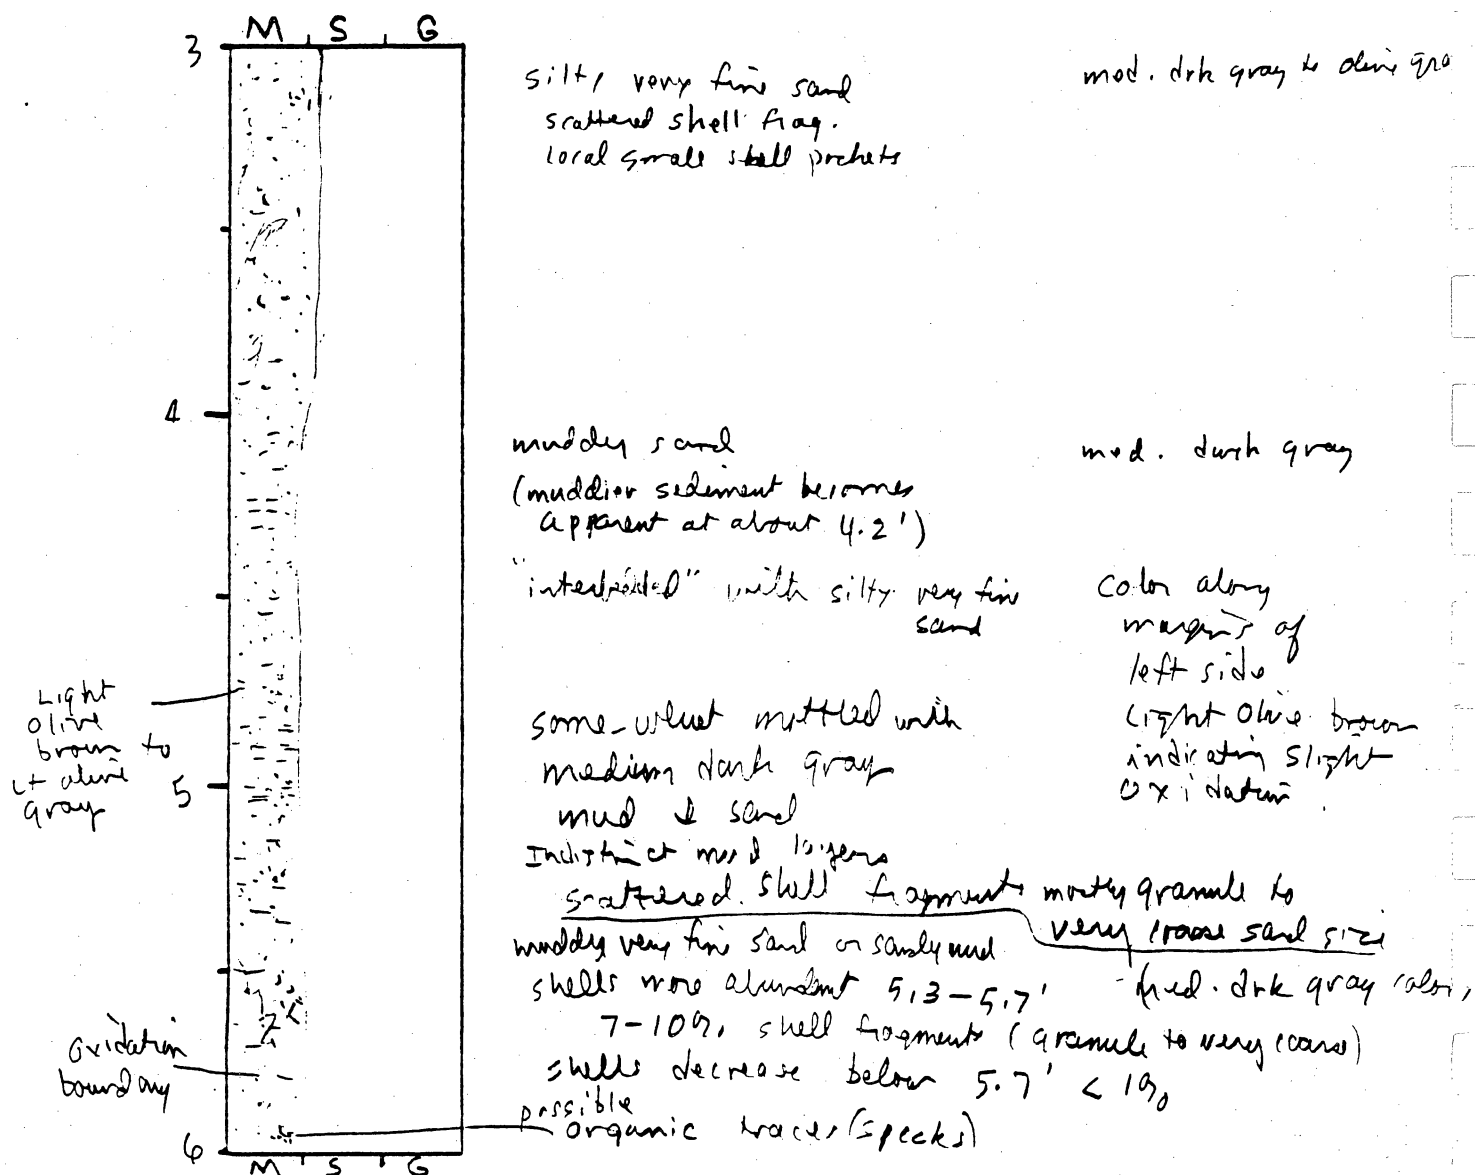 M S G
3
silty very fine sand
scattered shell frag.
local small shell pockets
med. drk gray to olive gra
4
muddy sand
(muddier sediment becomes
apparent at about 4.2')
med. dark gray
"interbedded" with silty very fine
sand
color along
margins of
left side
light olive brown
indicating slight
oxidation.
Light
olive
brown to
lt olive
gray
some-what mottled with
medium dark gray
mud & sand
5
Indistinct mud layers
scattered shell fragments mostly granule to
very coarse sand size
muddy very fine sand or sandy mud
shells more abundant 5.3-5.7'
med. drk gray color,
7-10% shell fragments (granule to very coarse)
shells decrease below 5.7' < 1%
oxidation
boundary
possible
organic traces (specks)
6
M S G